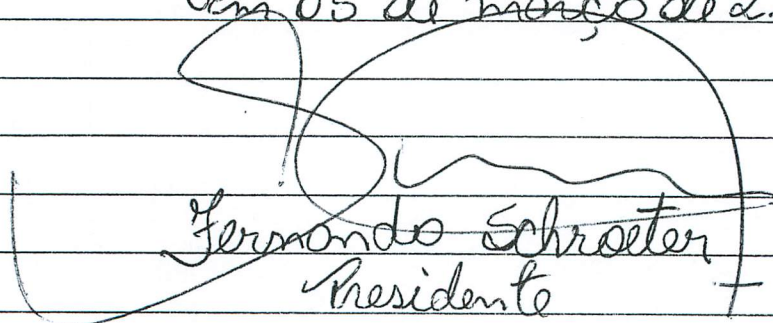 em 05 de março de 2.
Fernando Schroeter
Presidente